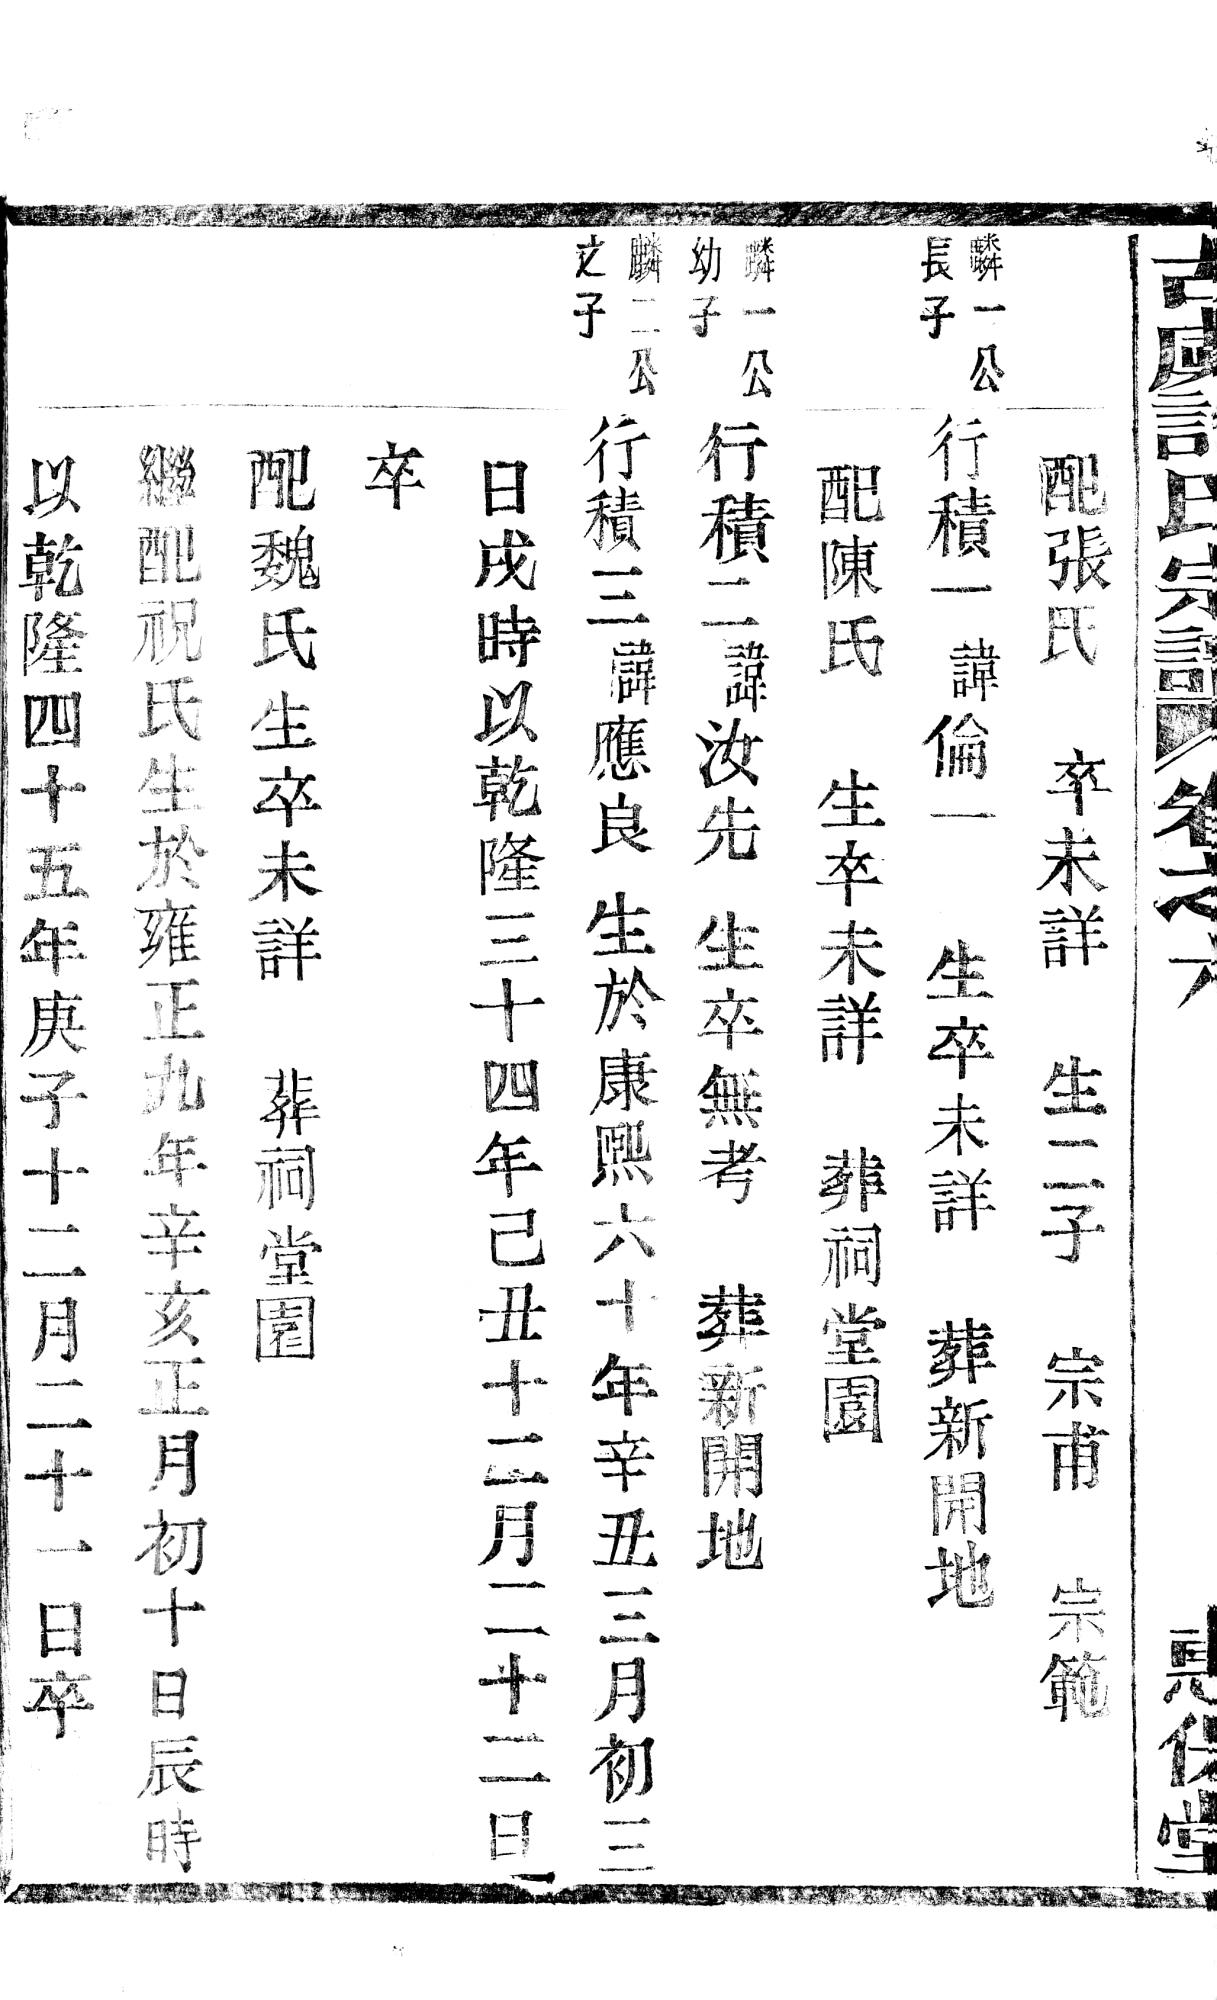 氏宗譜 卷之六
堂
配張氏 卒未詳 生二子 宗甫 宗範
麟一公
長子
行積一 諱倫一 生卒未詳 葬新開地
配陳氏 生卒未詳 葬祠堂園
麟一公
幼子
行積二 諱汝先 生卒無考 葬新開地
麟二公
之子
行積三 諱應良 生於康熙六十年辛丑三月初三
日戌時以乾隆三十四年己丑十二月二十二日
卒
配魏氏生卒未詳 葬祠堂園
繼配祝氏生於雍正九年辛亥正月初十日辰時
以乾隆四十五年庚子十二月二十一日卒